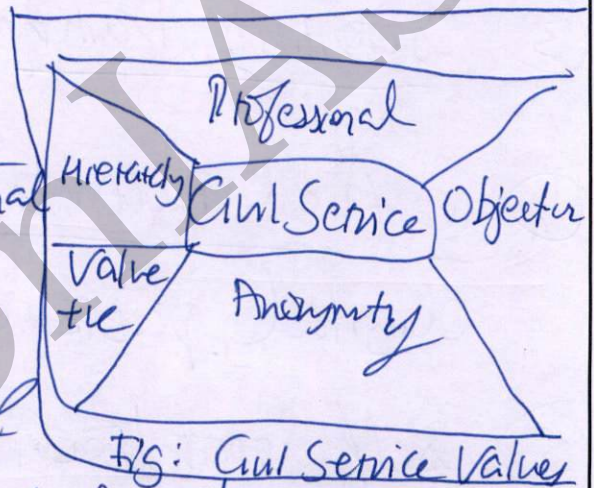 Professional
Hierarchy
Civil Service
Objective
Value
Anonymity
Fig: Civil Service Values